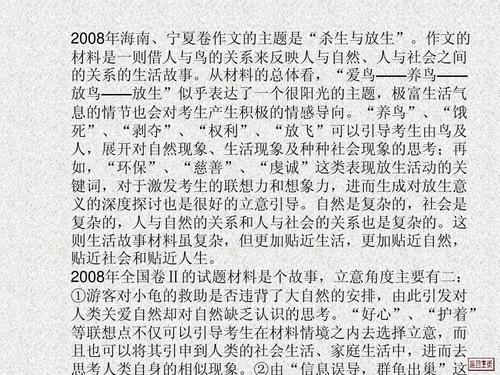 2008年海南、宁夏卷作文的主题是“杀生与放生”。作文的
材料是一则借人与鸟的关系来反映人与自然、人与社会之间
的关系的生活故事。从材料的总体看，“爱鸟——养鸟——
放鸟——放生”似乎表达了一个很阳光的主题，极富生活气
息的情节也会对考生产生积极的情感导向。“养鸟”、“饿
死”、“剥夺”、“权利”、“放飞”可以引导考生由鸟及
人，展开对自然现象、生活现象及种种社会现象的思考；再
如，“环保”、“慈善”、“虔诚”这类表现放生活动的关
键词，对于激发考生的联想力和想象力，进而生成对放生意
义的深度探讨也是很好的立意引导。自然是复杂的，社会是
复杂的，人与自然的关系和人与社会的关系也是复杂的。这
则生活故事材料虽复杂，但更加贴近生活，更加贴近自然，
贴近社会和贴近人生。
2008年全国卷Ⅱ的试题材料是个故事，立意角度主要有二：
①游客对小龟的救助是否违背了大自然的安排，由此引发对
人类关爱自然却对自然缺乏认识的思考。“好心”、“护着”
等联想点不仅可以引导考生在材料情境之内去选择立意，而
且也可以将其引申到人类的社会生活、家庭生活中，进而去
思考人类自身的相似现象。②由“信息误导，群龟出巢”这